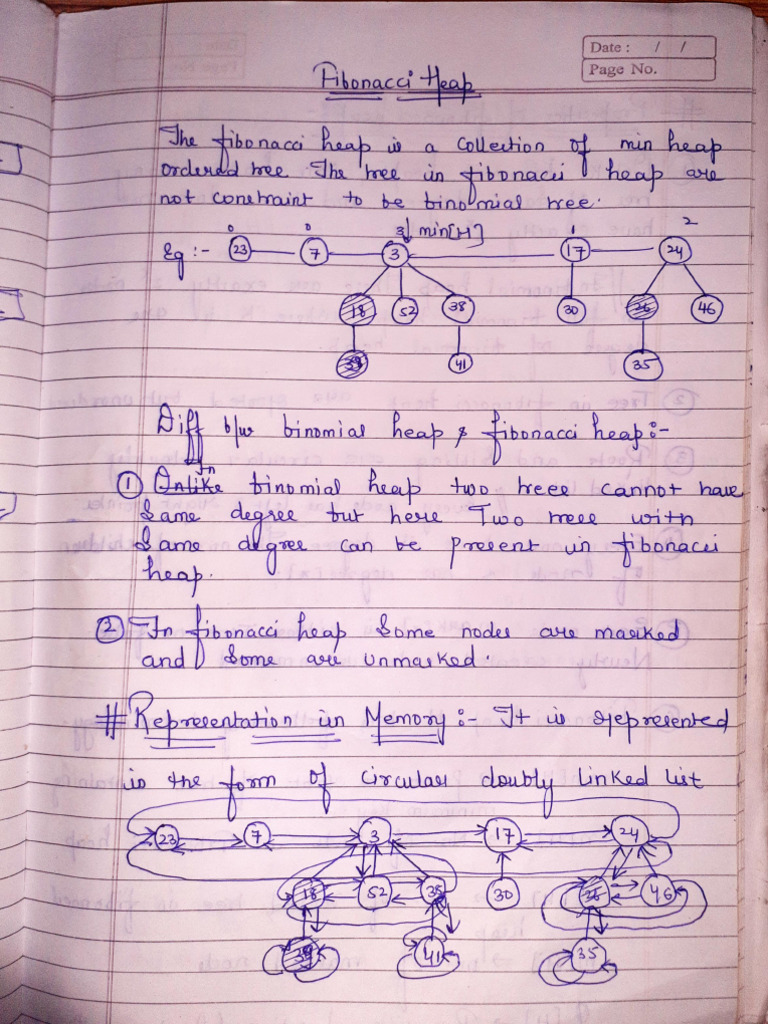 Date : / /
Page No.
Fibonacci Heap
The fibonacci heap is a collection of min heap
ordered tree. The tree in fibonacci heap are
not constraint to be binomial tree.
0 0 3 min[H] 1 2
Eg :- 23 7 3 17 24
18 52 38 30 26 46
39 41 35
Diff b/w binomial heap & fibonacci heap :-
In
① Unlike binomial heap two trees cannot have
same degree but here Two trees with
same degree can be present in fibonacci
heap.
② In fibonacci heap some nodes are marked
and some are unmarked.
# Representation in Memory :- It is represented
in the form of circular doubly linked list
23 7 3 17 24
18 52 38 30 26 46
39 41 35